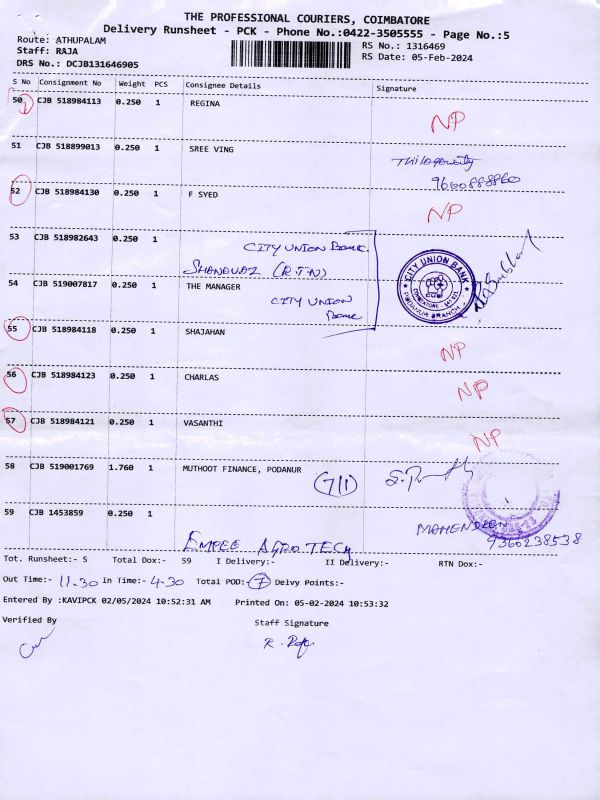 THE PROFESSIONAL COURIERS, COIMBATORE
Delivery Runsheet - PCK - Phone No.:0422-3505555 - Page No.:5
Route: ATHUPALAM
Staff: RAJA
RS No.: 1316469
DRS No.: DCJB131646905
RS Date: 05-Feb-2024
S No Consignment No Weight PCS Consignee Details Signature
50 CJB 518984113 0.250 1 REGINA NP
51 CJB 518899013 0.250 1 SREE VING
9600888860
52 CJB 518984130 0.250 1 F SYED NP
53 CJB 518982643 0.250 1 CITY UNION Bank
SHANAVAZ (R.T.N)
54 CJB 519007817 0.250 1 THE MANAGER
CITY UNION
Bank
CITY UNION BANK
55 CJB 518984118 0.250 1 SHAJAHAN NP
56 CJB 518984123 0.250 1 CHARLAS NP
57 CJB 518984121 0.250 1 VASANTHI NP
58 CJB 519001769 1.760 1 MUTHOOT FINANCE, PODANUR
(7/1)
59 CJB 1453859 0.250 1 MAHENDRAN
EMPEE AGRO TECH 9360238538
Tot. Runsheet:- 5 Total Dox:- 59 I Delivery:- II Delivery:- RTN Dox:-
Out Time:- 11.30 In Time:- 4.30 Total POD: 7 Delvy Points:-
Entered By :KAVIPCK 02/05/2024 10:52:31 AM Printed On: 05-02-2024 10:53:32
Verified By Staff Signature
R. Raja